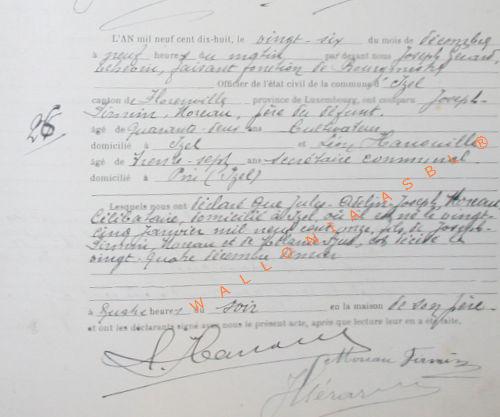 L'AN mil neuf cent dix-huit, le vingt-six du mois de décembre
à neuf heures du matin par devant nous Joseph Gérard,
échevin, faisant fonction de Bourgmestre
Officier de l'état civil de la commune d'Izel
canton de Florenville province de Luxembourg, ont comparu Joseph-
Firmin, Moreau, père du défunt.
26
âgé de Quarante-deux ans Cultivateur
domicilié à Izel et Léon Hanouille
âgé de Trente-sept ans secrétaire communal
domicilié à Pin (Izel)
Lesquels nous ont déclaré que July-Adelin-Joseph Moreau
Célibataire, domicilié à Izel, où il est né le vingt-
cinq janvier mil neuf cent onze, fils de Joseph-
Firmin, Moreau et de est décédé le
vingt-quatre décembre
à quatre heures du soir en la maison de son père.
et ont les déclarants signé avec nous le présent acte, après que lecture leur en a été faite.
WALLONIA ASBL ®
L. Hanouille
Moreau Firmin
J Gérard